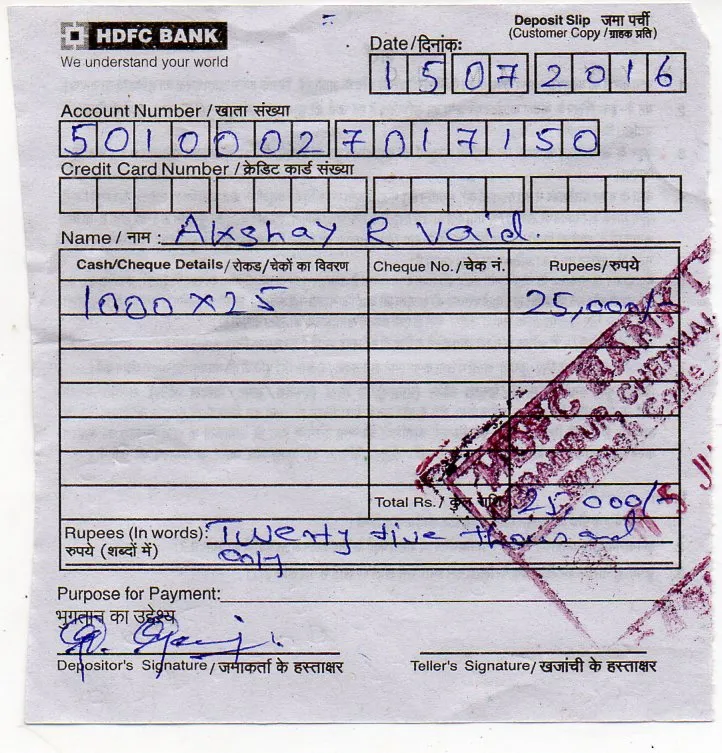 HDFC BANK
We understand your world
Deposit Slip जमा पर्ची
(Customer Copy/ग्राहक प्रति)
Date/दिनांक:
15072016
Account Number/खाता संख्या
50100027017150
Credit Card Number/क्रेडिट कार्ड संख्या
Name/नाम: Akshay R Vaid.
Cash/Cheque Details/रोकड/चेकों का विवरण Cheque No./चेक नं. Rupees/रुपये
1000 x 25 25,000/-
HDFC BANK LTD
PERAMBUR, CHENNAI
Total Rs./कुल राशि 25,000/-
Rupees (In words): Twenty five thousand
रुपये (शब्दों में) only
Purpose for Payment:
भुगतान का उद्देश्य
Depositor's Signature/जमाकर्ता के हस्ताक्षर Teller's Signature/खजांची के हस्ताक्षर